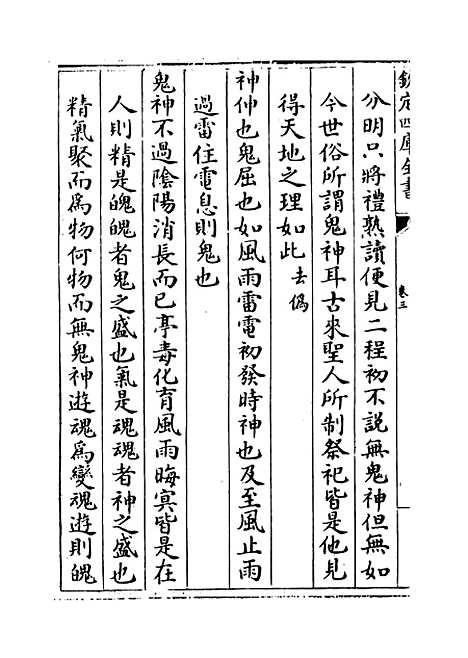 欽定四庫全書
卷三
分明只將禮熟讀便見二程初不説無鬼神但無如
今世俗所謂鬼神耳古來聖人所制祭祀皆是他見
得天地之理如此去偽
神伸也鬼屈也如風雨雷電初發時神也及至風止雨
過雷住電息則鬼也
鬼神不過陰陽消長而已亭毒化育風雨晦冥皆是在
人則精是魄魄者鬼之盛也氣是魂魂者神之盛也
精氣聚而爲物何物而無鬼神遊魂爲變魂遊則魄